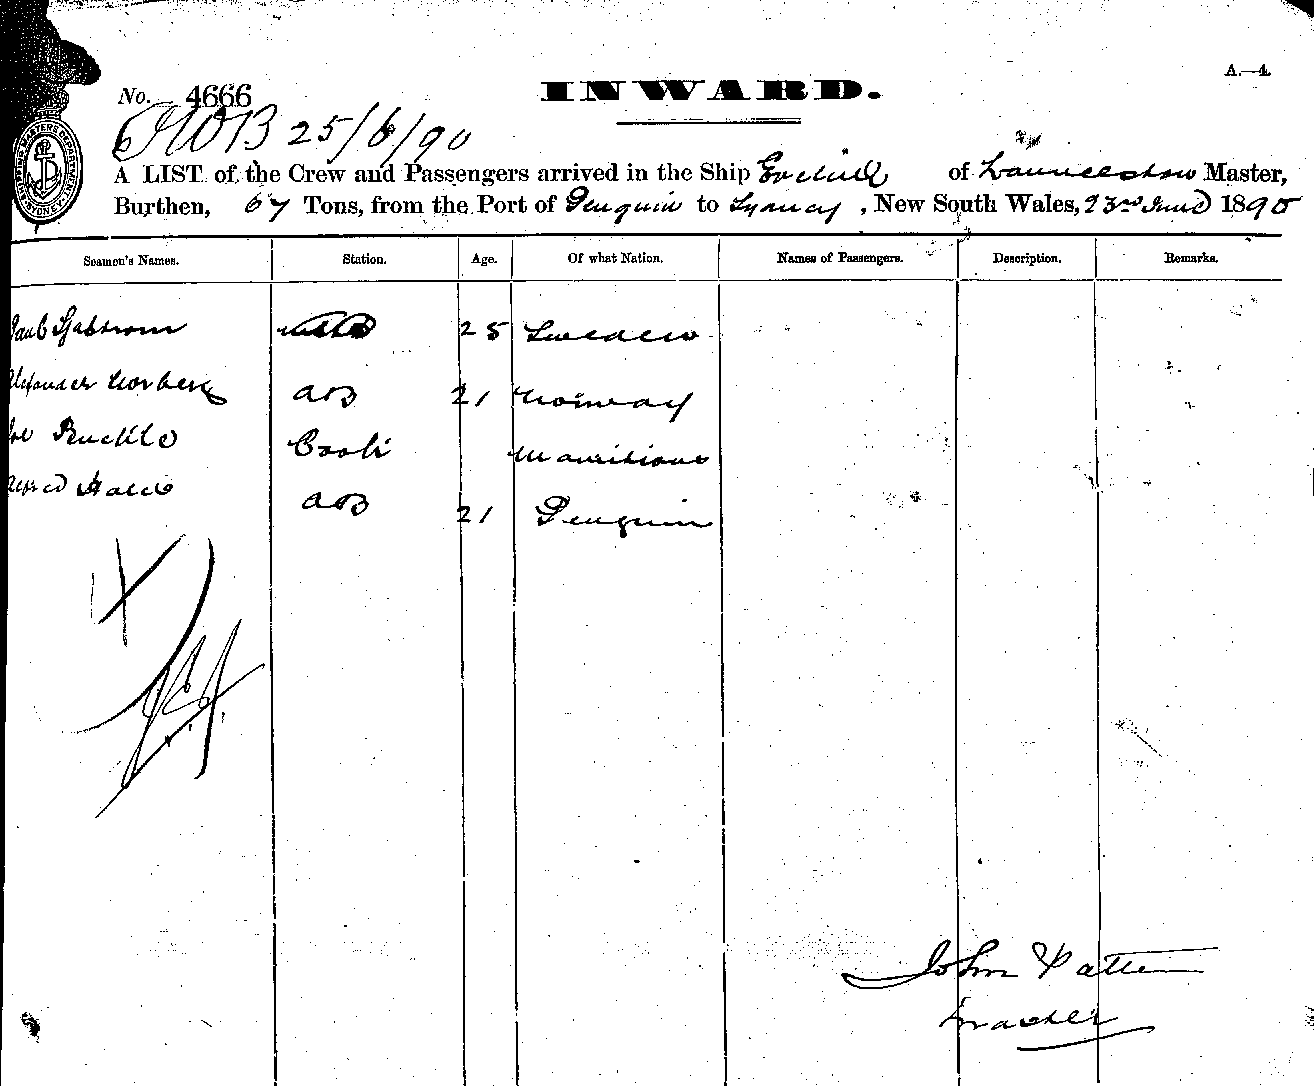 A.—4.
INWARD.
No. 4666
25/6/90
A LIST of the Crew and Passengers arrived in the Ship of Launceston Master,
Burthen, 67 Tons, from the Port of Penguin to Sydney, New South Wales, 23rd June 1890
Seamen's Names. Station. Age. Of what Nation. Names of Passengers. Description. Remarks.
25 Sweden
Alexander Norberg AB 21 Norway
Buckle Cook Mauritious
Alfred AB 21 Penguin
John Patten
Master